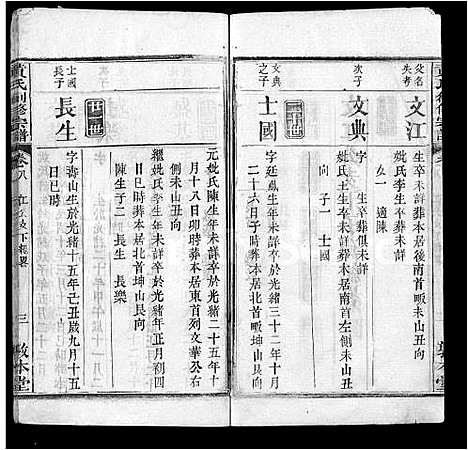 父名失考
文江
生卒未詳葬本居後南首畈未山丑向
妣氏李生卒未詳葬本居
女一 適陳
次子
文典
字 生卒葬俱未詳
妣氏 生卒未詳葬本居南首左側
向 子一 士國
廿世
文典之子
士國
字 生卒年未詳卒於光緒三十二年十月
二十六日子時葬本居北首畈坤山艮向
元妣氏陳生年未詳卒於光緒二十五年十
月十八日卯時葬本居東首列文華公右
側未山丑向
繼妣氏李生年未詳卒於光緒年正月初四
日巳時葬本居北首畈坤山艮向
陳生子二 長生 長樂
廿一世
士國長子
長生
字壽山生於光緒十五年己丑歲九月十五
日巳時
黃氏創修宗譜
卷八
三
敬本堂